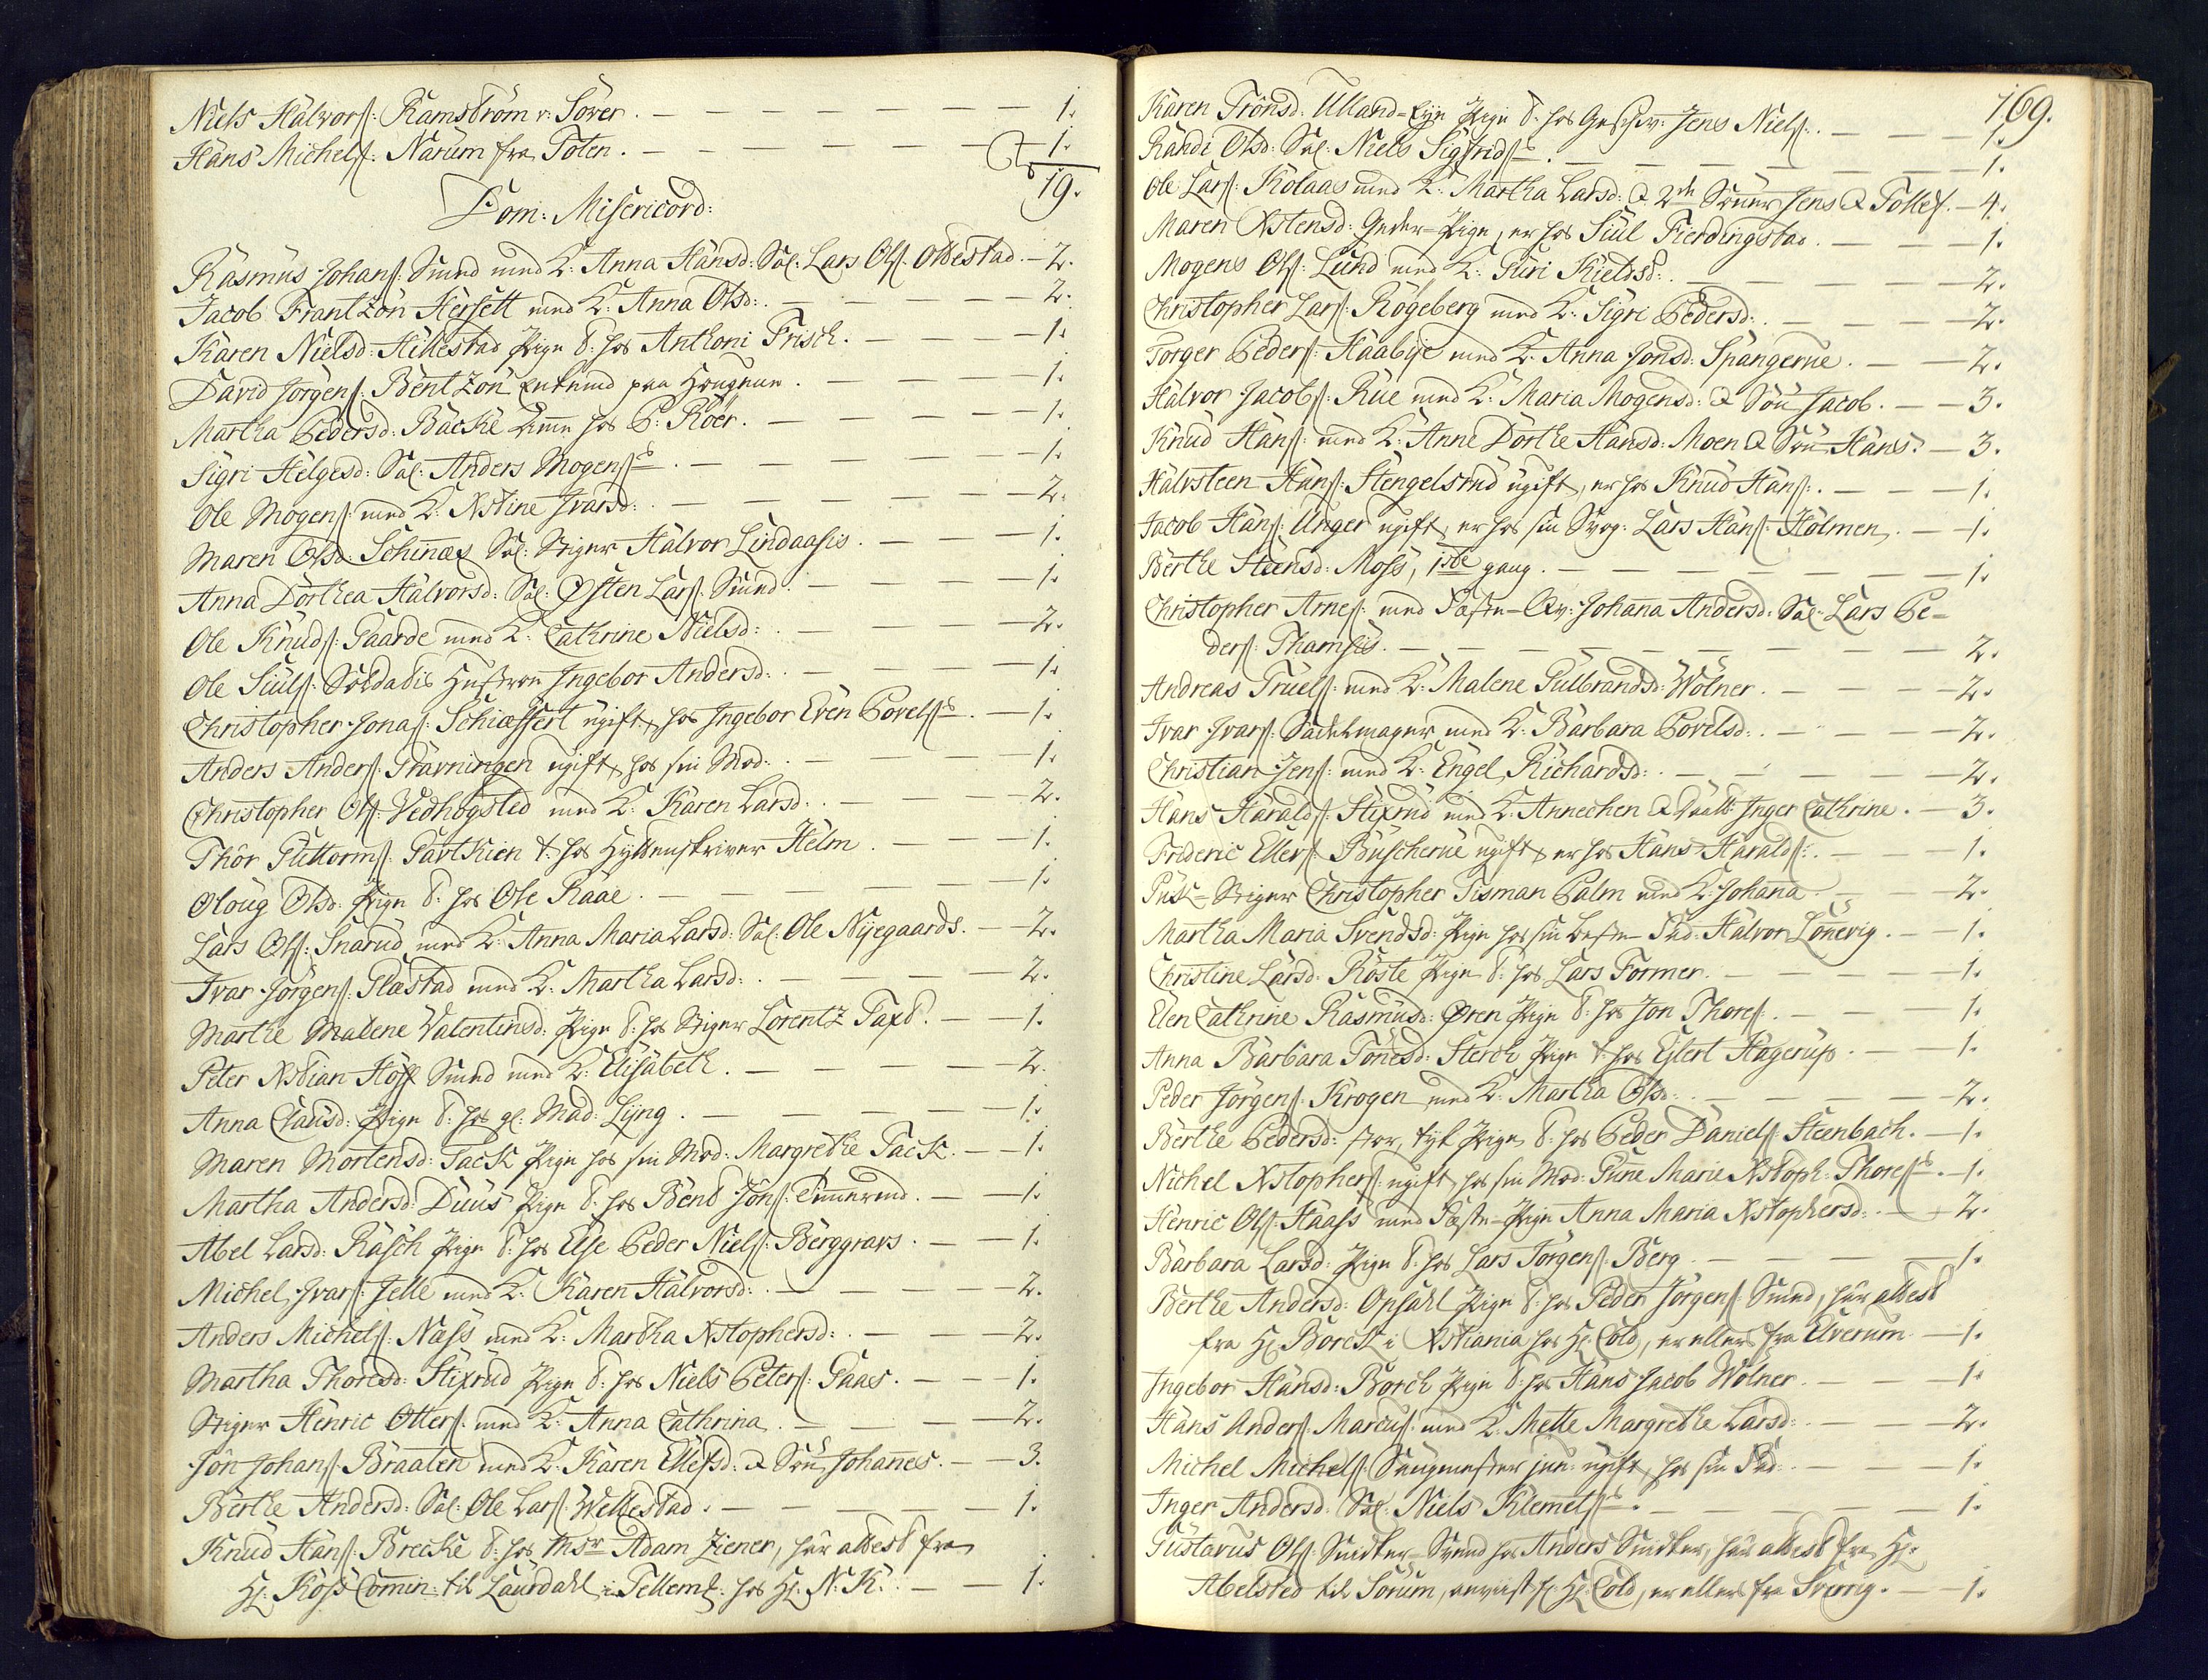 Niels Halvors: Ramstrøm v: Sover. — 1.
Hans Michels: Narum fra Toten. — 1.
19.
Dom: Misericord:
Rasmus Johans: Smed med K: Anna Hansd: Sal: Lars Ols: Ollestad. — 2.
Jacob Frantzøn Hersett med K: Anna Olsd: — 2.
Karen Nielsd: Hillestad Pige t: hos Anthoni Frisch. — 1.
David Jørgens: Bentzon Enkemd paa Hougene. — 1.
Martha Pedersd: Backe hos P: Röer. — 1.
Sigri Helgesd: Sal: Anders Mogens:s — 1.
Ole Mogens: med K: Xstine Ivarsd: — 2.
Maren Olsd: Schinnæs Sal: Stiger Halvor Lindaasis. — 1.
Anna Dorthea Halvorsd: Sal: Østen Lars: Smed. — 1.
Ole Knuds: Gaarde med K: Cathrine Nielsd: — 2.
Ole Siuls: Soldatis Hustroe Ingebor Andersd: — 1.
Christopher Jonas: Schiæffert ugift, hos Ingebor Even Povels:s — 1.
Anders Anders: Gravningen ugift, hos sin Mod: — 1.
Christopher Ols: Vedhogsted med K: Karen Larsd: — 2.
Thor Guttorms: Gartkien t: hos Hyttenskriver Helm. — 1.
Oloug Olsd: Pige t: hos Ole Raae. — 1.
Lars Ols: Snarud med K: Anna Maria Larsd: Sal: Ole Nyegaards. — 2.
Ivar Jørgens: Glæstad med K: Martha Larsd: — 2.
Marthe Malene Valentinsd: Pige t: hos Stiger Lorentz Taxt. — 1.
Peter Xstian Hoff Smed med K: Elisabeth. — 2.
Anna Clausd: Pige t: hos gl: Mad: Lyng. — 1.
Maren Mortensd: Tack Pige hos sin Mod: Margrethe Tack. — 1.
Martha Andersd: Duus Pige t: hos Bent Jons: Timmermd. — 1.
Abel Larsd: Rasch Pige t: hos Else Peder Niels: Berggravs. — 1.
Michel Ivars: Jelle med K: Karen Halvorsd: — 2.
Anders Michels: Næss med K: Martha Xstophersd: — 2.
Martha Thoresd: Stixrud Pige t: hos Niels Peters: Gaas. — 1.
Stiger Henric Otters: med K: Anna Cathrina. — 2.
Jon Johans: Braaten med K: Karen Ellefsd: & Søn Johannes. — 3.
Berthe Andersd: Sal: Ole Lars: Wellestad. — 1.
Knud Hans: Brecke t: hos Msr Adam Ziener, har attest fra
Hr. Koss Commin: til Laurdahl i Tellemk: hos Hr. N. K. — 1.
169.
Karen Trönsd: Ulland-Eye Pige t: hos Geschw: Jens Niels: — 1.
Randi Olsd: Sal: Niels Sigfrids:s — 1.
Ole Lars: Kolaas med K: Martha Larsd: & 2de Sønner Jens & Tollef. — 4.
Maren Xstensd: Geder-Pige, er hos Siul Fierdingstad. — 1.
Mogens Ols: Lund med K: Guri Kieldsd: — 2.
Christopher Lars: Rögeberg med K: Sigri Pedersd: — 2.
Torger Peders: Haabye med K: Anna Jonsd: Spangerue. — 2.
Halvor Jacobs: Rue med K: Maria Mogensd: & Søn Jacob. — 3.
Knud Hans: med K: Anne Dorthe Hansd: Moen & Søn Hans. — 3.
Halvsteen Hans: Stengelsrud ugift, er hos Knud Hans: — 1.
Jacob Hans: Unger ugift, er hos sin Svog: Lars Hans: Holmen. — 1.
Berthe Steensd: Moss, 1ste gang. — 1.
Christopher Arnes: med Fæste-Qv: Johanna Andersd: Sal: Lars Pe-
ders: Thamsis. — 2.
Andreas Truels: med K: Malene Gulbrandsd: Wölner. — 2.
Ivar Ivars: Sadelmager med K: Barbara Povelsd: — 2.
Christian Jens: med K: Engel Richardsd: — 2.
Hans Haralds: Stixrud med K: Annechen & Daatt: Inger Cathrine. — 3.
Frideric Ellers: Buscherue ugift, er hos Hans Haralds: — 1.
Puk-Stiger Christopher Tisman Palm med K: Johanna. — 2.
Martha Maria Svendsd: Pige hos sin Beste-Fad: Halvor Lönnevig. — 1.
Christine Larsd: Röste Pige t: hos Lars Former. — 1.
Elen Cathrine Rasmusd: Øren Pige t: hos Jon Thores: — 1.
Anna Barbara Tönnesd: Sterch Pige t: hos Eylert Hagerup. — 1.
Peder Jörgens: Krogen med K: Martha Olsd: — 2.
Berthe Pedersd: stor, tyk Pige t: hos Peder Daniels: Steenbach. — 1.
Nichel Xstophers: ugift, hos sin Mod: Gune Marie Xstoph: Thores:s — 1.
Henric Ols: Haass med Fæste-Pige Anna Maria Xstophersd: — 2.
Barbara Larsd: Pige t: hos Lars Törgens: Berg. — 1.
Berthe Andersd: Opsahl Pige t: hos Peder Jörgens: Smed, har attest
fra Hr. Borch i Xstiania hos Hr. Cold, er ellers fra Elverum. — 1.
Ingebor Hansd: Borch Pige t: hos Hans Jacob Wölner. — 1.
Hans Anders: Marcus: med K: Mette Margrethe Larsd: — 2.
Michel Michels: Saugmester jun: ugift, hos sin Fad: — 1.
Inger Andersd: Sal: Niels Klemets:s — 1.
Gustavus Ols: Snidker-Svend hos Anders Snidker, har attest fra Hr.
Abelsted til Sörum, anviist fr. Hr. Cold, er ellers fra Sverrig. — 1.